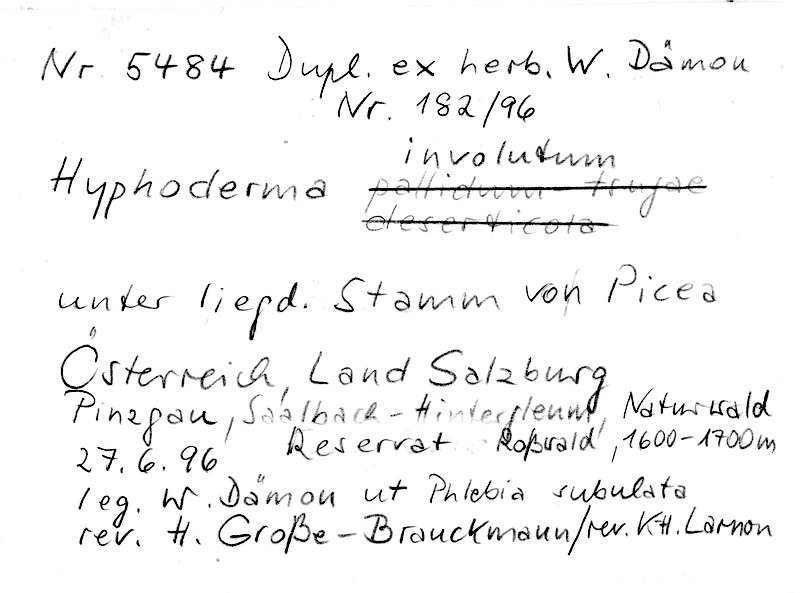 Nr. 5484 Dupl. ex herb. W. Dämon
Nr. 182/96
involutum
Hyphoderma pallidum tsugae
deserticola
unter liegd. Stamm von Picea
Österreich, Land Salzburg
Pinzgau, Saalbach-Hinterglemm, Naturwald
27.6.96 Reservat Roßwald, 1600-1700m
leg. W. Dämon ut Phlebia subulata
rev. H. Große-Brauckmann/rev. KH. Larsson